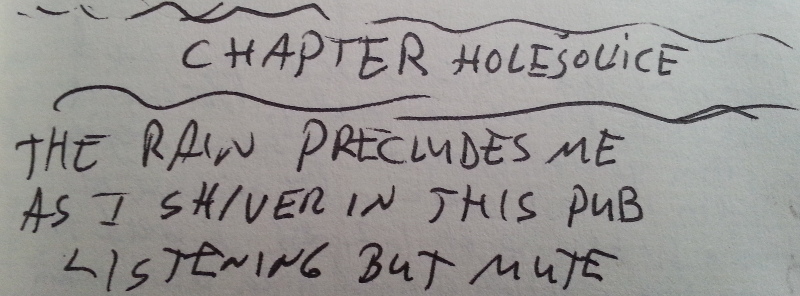 CHAPTER HOLEŠOVICE
THE RAIN PRECLUDES ME
AS I SHIVER IN THIS PUB
LISTENING BUT MUTE